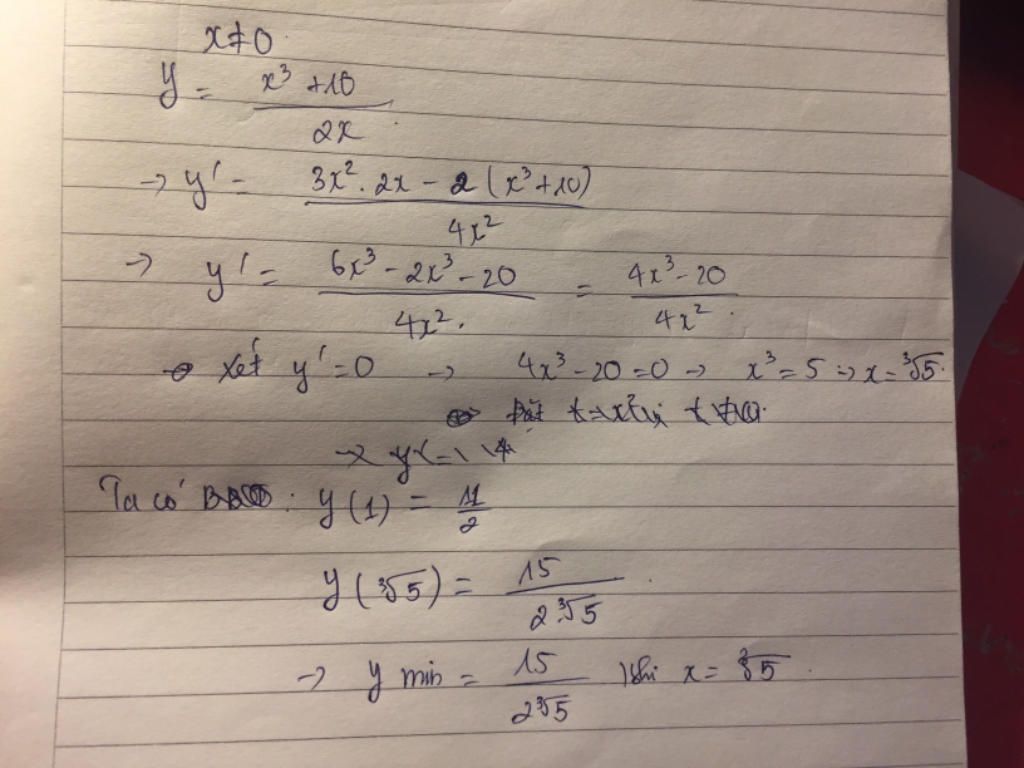 x≠0.
y = (x³ + 10) / 2x.
→ y' = (3x². 2x − 2 (x³+10)) / 4x²
→ y' = (6x³ − 2x³ − 20) / 4x². = (4x³ − 20) / 4x².
Xét y' = 0 → 4x³ − 20 = 0 → x³ = 5 → x = ∛5.
Ta có : y(1) = 11/2
y(∛5) = 15 / 2∛5.
→ y min = 15 / 2∛5 khi x = ∛5.